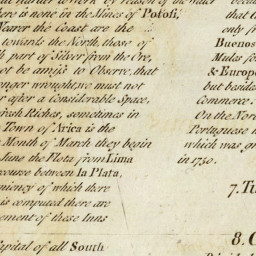 harder to work by reason of the water
here is none in the Mines of Potosi,
Nearer the Coast are the
towards the North, those of
th part of Silver from the Ore,
not be amiss to Observe, that
longer wrought, we must not
r after a considerable Space,
fresh Riches, sometimes in
Town of Arica is the
e Month of March they begin
June the Flota from Lima
course between la Plata,
niency of which there
is computed there are
ement of these Inns
apital of all South
that t
only fr
Buenos
Mules fo
& Europe
but beside
Commerce.
On the Nor
Portuguese
which was gr
in 1750.
7. Tu
8. C